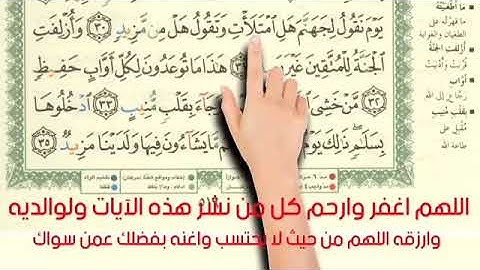 يَوْمَ نَقُولُ لِجَهَنَّمَ هَلِ ٱمْتَلَأْتِ وَتَقُولُ هَلْ مِن مَّزِيدٍ ٣٠ وَأُزْلِفَتِ
ٱلْجَنَّةُ لِلْمُتَّقِينَ غَيْرَ هَٰذَا مَا تُوعَدُونَ لِكُلِّ أَوَّابٍ حَفِيظٍ
٣٢ مَّنْ خَشِيَ جَآءَ بِقَلْبٍ مُّنِيبٍ ٣٣ ٱدْخُلُوهَا
بِسَلَٰمٍ ذَٰلِكَ يَوْمُ مَّا يَشَآءُونَ فِيهَا وَلَدَيْنَا مَزِيدٌ ٣٥
مَا أَطْغَيْتُهُ
ما قهرته على
الطغيان والغواية
أُزْلِفَتِ الْجَنَّةُ
قربت وأدنيت
أَوَّابٍ
رجاع إلى الله
بِقَلْبٍ مُنِيبٍ
مقبل على
طاعة الله
اللهم اغفر وارحم كل من نشر هذه الآيات ولوالديه
وارزقه اللهم من حيث لا يحتسب واغنه بفضلك عمن سواك